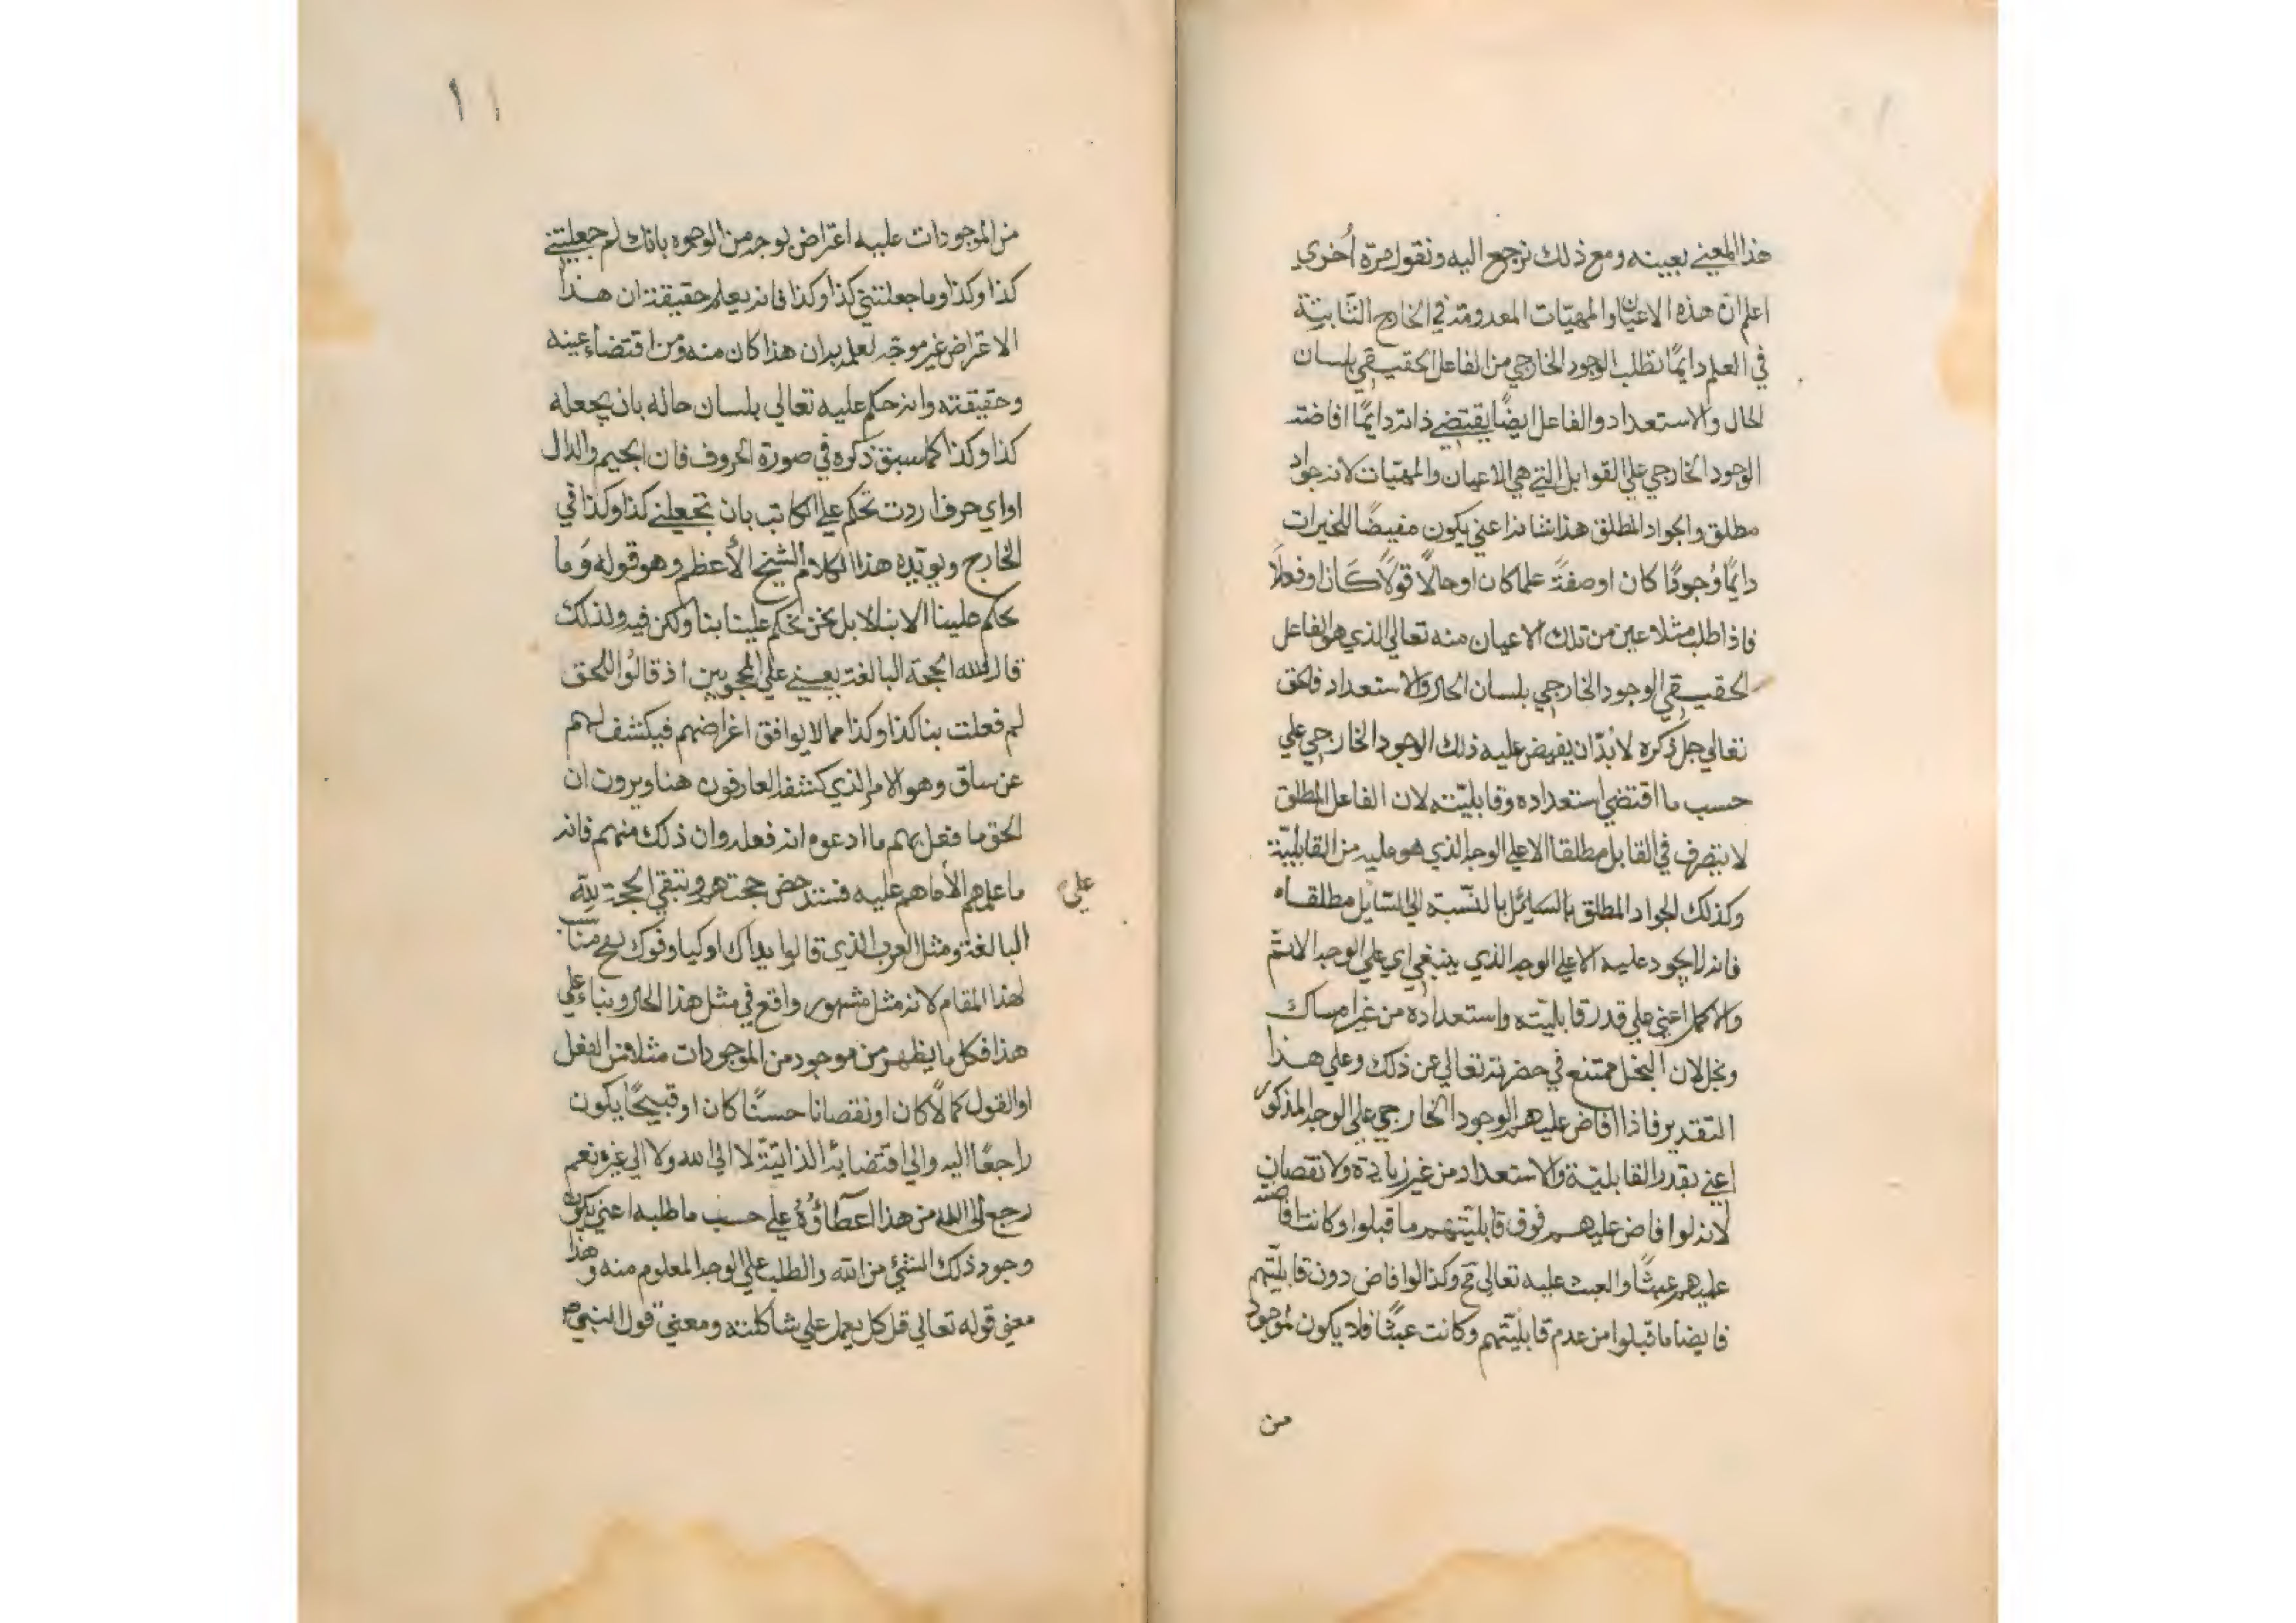 هذا المعني بعينه ومع ذلك نرجع اليه ونقول مرة أخري
اعلم ان هذه الاعيان والمهيّات المعدومة في الخارج الثّابتة
في العلم دايمًا تطلب الوجود الخارجي من الفاعل الحقيقي بلسان
الحال والاستعداد والفاعل ايضًا يقتضي ذاته دايمًا افاضته
الوجود الخارجي علي القوابل التي هي الاعيان والمهيّات لانه جواد
مطلق والجواد المطلق هذا شانه اعني يكون مفيضًا للخيرات
دايمًا وُجودًا كان اوصفةً علما كان او حالًا قولًا كَان او فعلًا
فاذا طلب مثلا عين من تلك الاعيان منه تعالي الذي هو الفاعل
الحقيقي الوجود الخارجي بلسان الحال والاستعداد فالحق
تعالي جل ذكره لابُدّ ان يفيض عليه ذلك الوجود الخارجي علي
حسب ما اقتضي استعداده وقابليّته لان الفاعل المطلق
لا يتصرف في القابل مطلقا الا علي الوجه الذي هو عليه من القابليّة
وكذلك الجواد المطلق بالنّسبة الي السّايل مطلقا
فانه لا يجود عليه الا علي الوجه الذي ينبغي اي علي الوجه الاتمّ
والاكمل اعني علي قدر قابليّته واستعداده من غير امساك
وبخل لان البخل ممتنع في حضرته تعالي عن ذلك وعلي هذا
التقدير فاذا افاض عليهم الوجود الخارجي علي الوجه المذكور
اعني بقدر القابليّة والاستعداد من غير زيادة ولا نقصان
لانه لو افاض عليهم فوق قابليّتهم ما قبلوا وكانت افاضته
عليهم عبثًا والعبث عليه تعالي مح وكذا لو افاض دون قابليّتهم
فايضا ما قبلوا من عدم قابليّتهم وكانت عبثًا فلا يكون لموجود
من
١١
من الموجودات عليه اعتراض بوجه من الوجوه بانك لم جعلتني
كذا وكذا وما جعلتني كذا وكذا فانه يعلم حقيقة ان هذا
الاعتراض غير موجّه لعلمه بان هذا كان منه ومن اقتضاء عينه
وحقيقته وانه حكم عليه تعالي بلسان حاله بان يجعله
كذا وكذا كما سبق ذكره في صورة الحروف فان الجيم والدال
او اي حرف اردت تحكم علي الكاتب بان تجعلني كذا وكذا في
الخارج ويويّده هذا الكلام الشيخ الأعظم وهو قوله وَما
يحكم علينا الا بنا لا بل نحن نحكم علينا بنا ولكن فيه ولذلك
قال فلله الحجة البالغة يعني علي المحجوبين اذ قالوُا للحق
لم فعلت بنا كذا وكذا مما لا يوافق اغراضهم فيكشف لهم
عن ساق وهو الامر الذي كشفه العارفون هنا ويرون ان
الحق ما فعل بهم ما ادعوه انه فعله وان ذلك منهم فانه
ما علمهم الّا ما هم عليه فتندحض حجتهم وتبقي الحجة للّه
علي
البالغة ومثل العرب الذي قالوا يداك اوكيا وفوك نفخ مناسب
لهذا المقام لانه مثل مشهور واقع في مثل هذا الحال وبناء علي
هذا فكل ما يظهر من موجود من الموجودات مثلا من الفعل
او القول كمالًا كان او نقصانا حسنًا كان او قبيحًا يكون
راجعًا اليه والي اقتضايه الذاتيّة لا الي الله ولا الي غيره نعم
رجع الي الله من هذا اعطآؤُهُ علي حسب ما طلبه اعني يكون
وجود ذلك الشئ من اللّه والطلب علي الوجه المعلوم منه وهذا
معني قوله تعالي قل كل يعمل علي شاكلته ومعني قول النبي ص